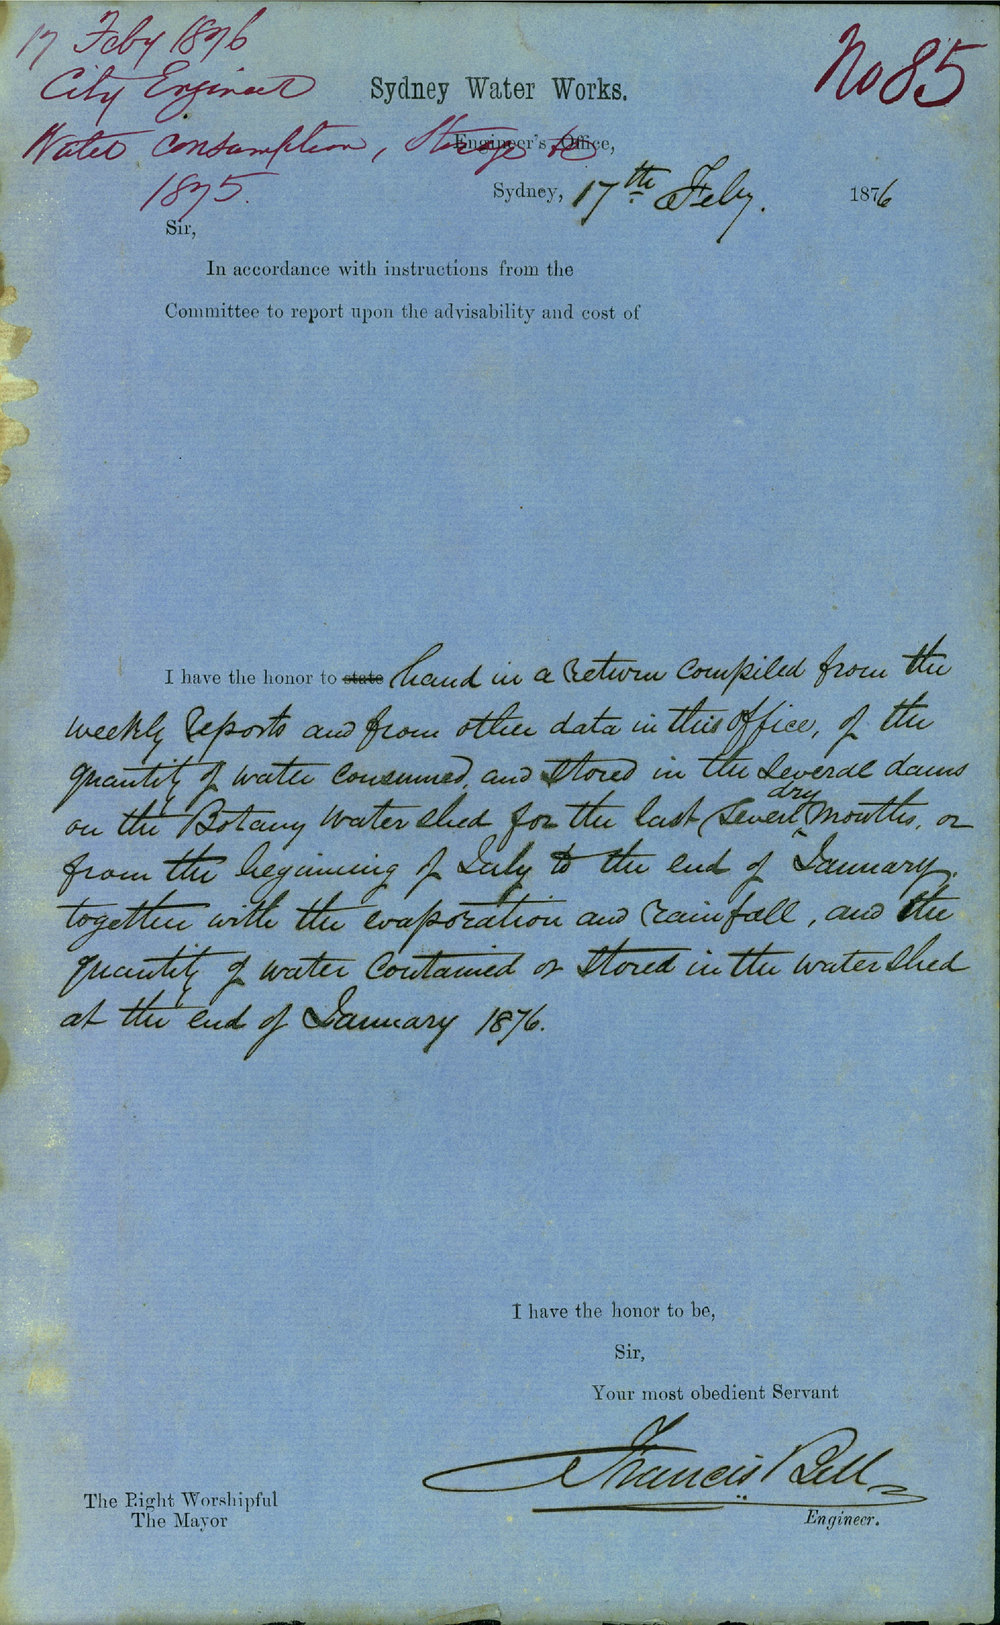 17 Feby 1876
City Engineer
Water Consumption, Storage &c
1875.
No 85
Sydney Water Works.
Engineer's Office,
Sydney, 17th Feby. 1876
Sir,
In accordance with instructions from the
Committee to report upon the advisability and cost of
I have the honor to state hand in a Return compiled from the
weekly Reports and from other data in this Office, of the
quantity of water consumed, and stored in the several dams
on the Botany Water shed for the last seven dry months, or
from the beginning of July to the end of January,
together with the evaporation and rainfall, and the
quantity of water contained or stored in the water shed
at the end of January 1876.
I have the honor to be,
Sir,
Your most obedient Servant
Francis Bell
Engineer.
The Right Worshipful
The Mayor